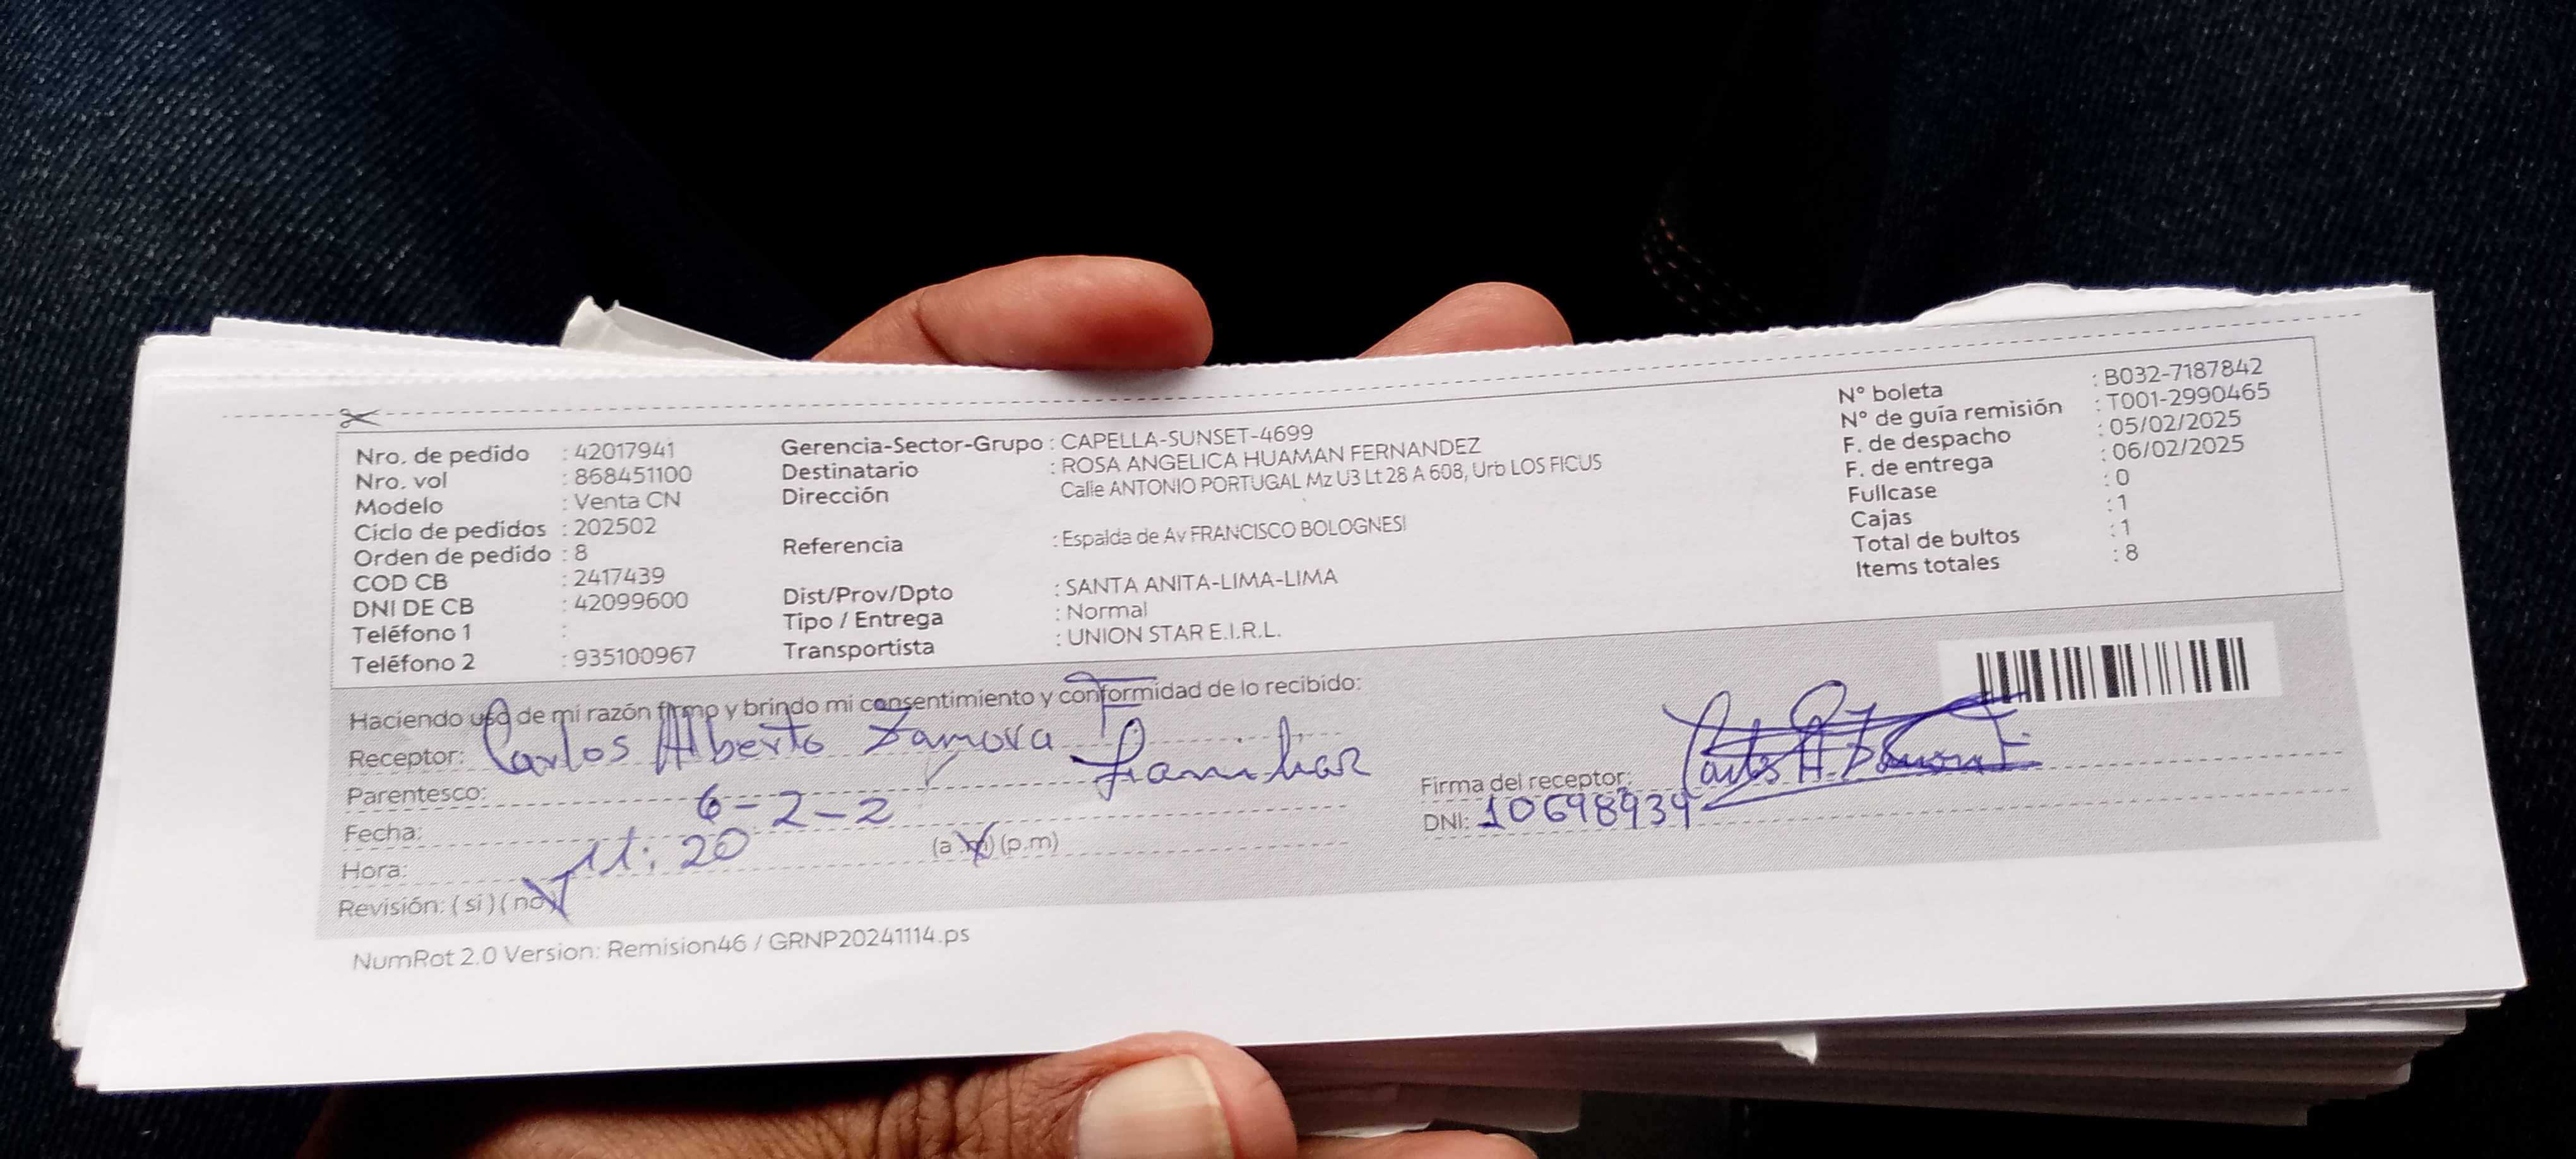 Nro. de pedido : 42017941
Nro. vol : 868451100
Modelo : Venta CN
Ciclo de pedidos : 202502
Orden de pedido : 8
COD CB : 2417439
DNI DE CB : 42099600
Teléfono 1 :
Teléfono 2 : 935100967
Gerencia-Sector-Grupo : CAPELLA-SUNSET-4699
Destinatario : ROSA ANGELICA HUAMAN FERNANDEZ
Dirección Calle ANTONIO PORTUGAL Mz U3 Lt 28 A 608, Urb LOS FICUS
Referencia : Espalda de Av FRANCISCO BOLOGNESI
Dist/Prov/Dpto : SANTA ANITA-LIMA-LIMA
Tipo / Entrega : Normal
Transportista : UNION STAR E.I.R.L.
N° boleta : B032-7187842
N° de guía remisión : T001-2990465
F. de despacho : 05/02/2025
F. de entrega : 06/02/2025
Fullcase : 0
Cajas : 1
Total de bultos : 1
Items totales : 8
Haciendo uso de mi razón firmo y brindo mi consentimiento y conformidad de lo recibido:
Receptor: Carlos Alberto Zamora F
Parentesco: Familiar
Fecha: 6-2-2
Hora: 11:20 (a.m) (p.m)
Revisión: (si) (no)
Firma del receptor:
DNI: 10698939
NumRot 2.0 Version: Remision46 / GRNP20241114.ps